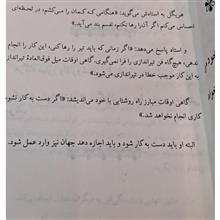 هریگل به استادش می‌گوید: «هنگامی که کمان را می‌کشم، در لحظه‌ای
احساس می‌کنم اگر آن‌را رها نکنم، نفسم بند می‌آید.»
و استاد پاسخ می‌دهد: «اگر زمانی که باید تیر را رها کنی، این کار را انجام
ندهی، هیچ‌گاه فن تیراندازی را فرا نمی‌گیری. گاهی اوقات میل فوق‌العادهٔ تیرانداز
به این کار موجب خطا در تیراندازی است.»
گاهی اوقات مبارز راه روشنایی با خود می‌اندیشد: «اگر دست به کار نشوم
کاری انجام نخواهد شد.»
البته او باید دست به کار شود و باید اجازه دهد جهان نیز وارد عمل شود.